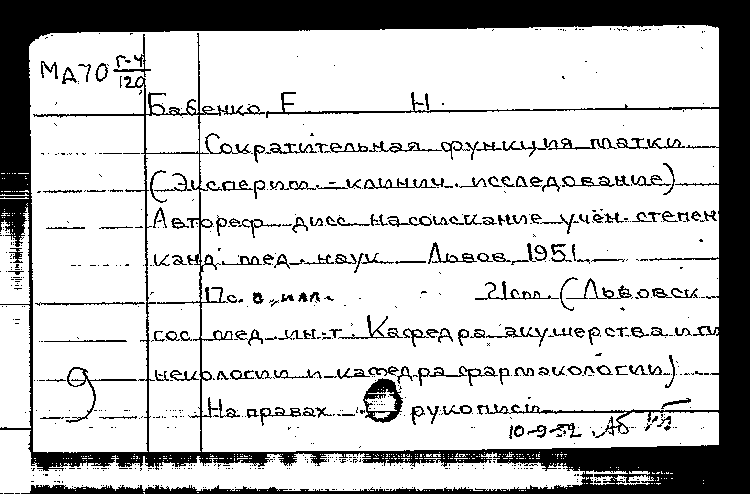 МА70 Г-4/120
Бабенко, Е Н.
Сократительная функция матки
(Эксперим.-клинич. исследование)
Автореф дисс на соискание учён. степен
канд. мед. наук Львов, 1951
17с. с илл. 21см. (Львовск
гос мед. ин-т. Кафедра акушерства и ги
некологии и кафедра фармакологии)
На правах рукописи
9
10-9-52